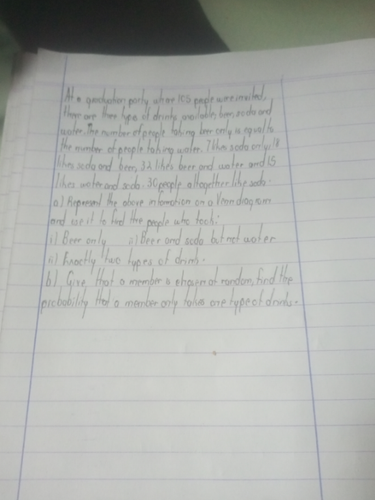 At a graduation party where 105 people were invited,
there are three types of drinks available; beer, soda and
water. The number of people taking beer only is equal to
the number of people taking water. 7 likes soda only; 14
likes soda and beer, 32 likes beer and water and 15
likes water and soda. 30 people altogether like soda.
a) Represent the above information on a Venn diagram
and use it to find the people who took:
i) Beer only ii) Beer and soda but not water
iii) Exactly two types of drink.
b) Give that a member is chosen at random, find the
probability that a member only takes one type of drinks.